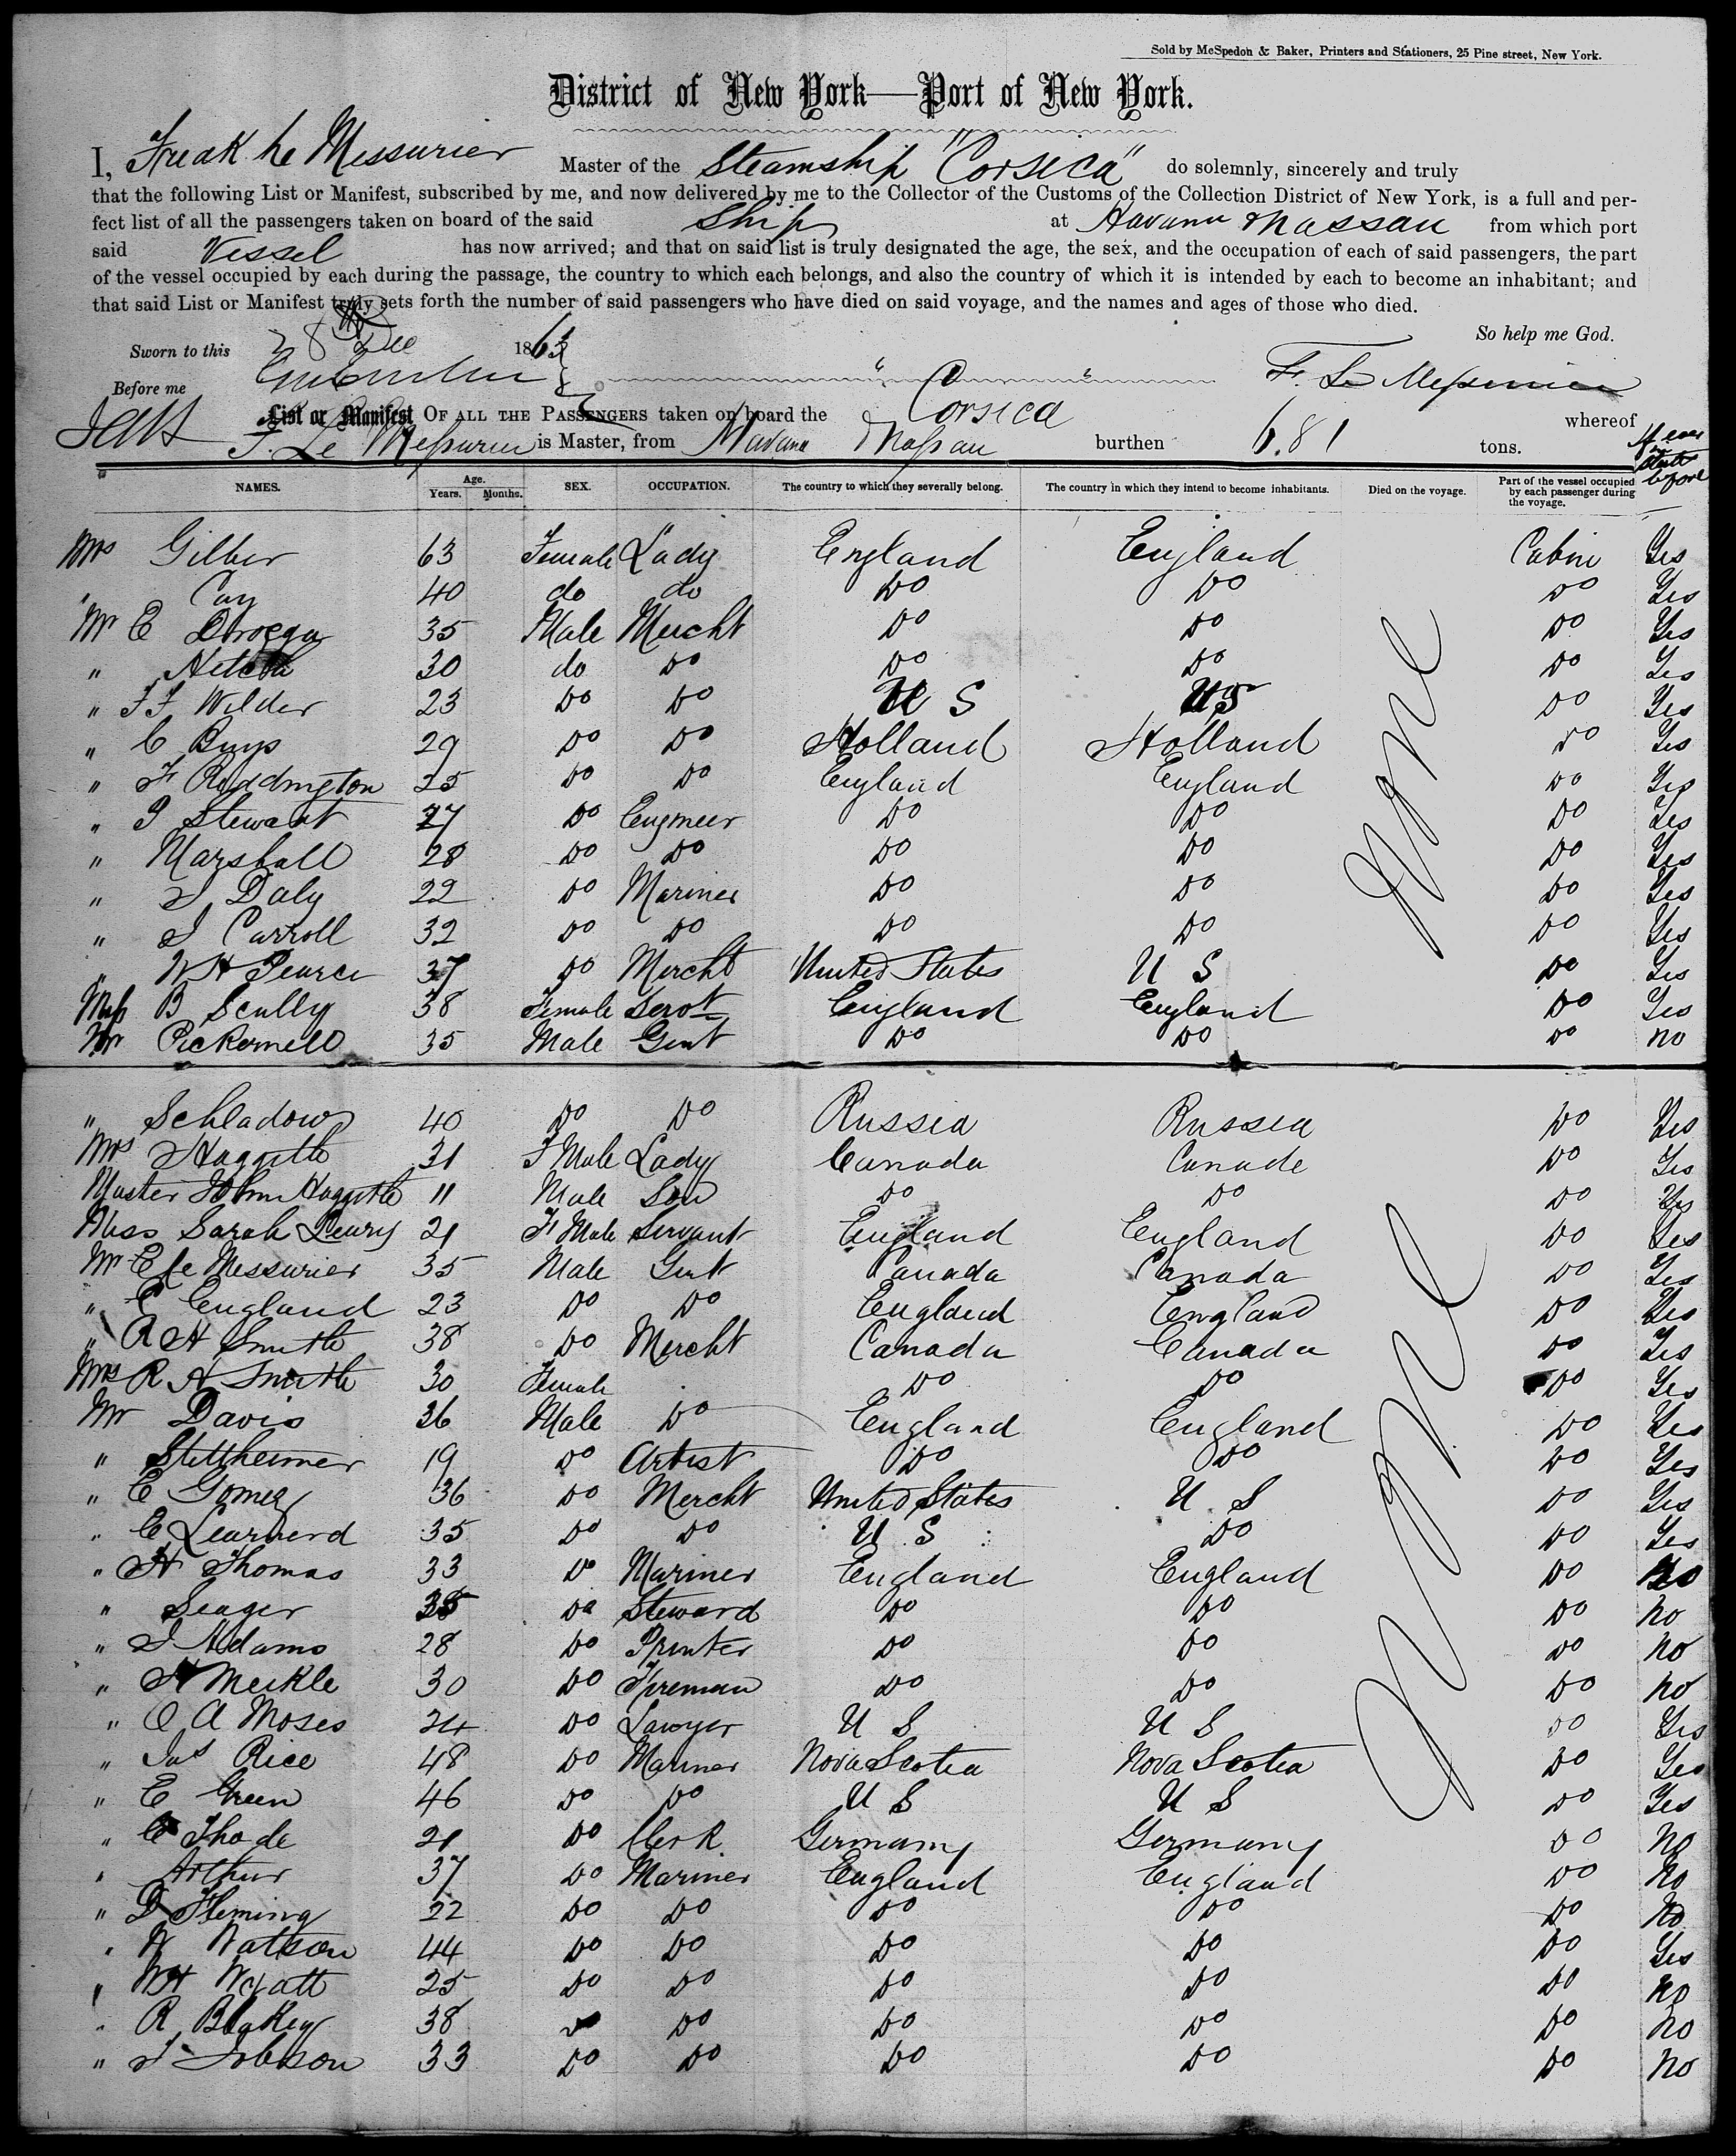 Sold by McSpedon & Baker, Printers and Stationers, 25 Pine street, New York.
District of New York—Port of New York.
I, Freak Le Messurier Master of the Steamship "Corsica" do solemnly, sincerely and truly
that the following List or Manifest, subscribed by me, and now delivered by me to the Collector of the Customs of the Collection District of New York, is a full and per-
fect list of all the passengers taken on board of the said Ship at Havana & Nassau from which port
said Vessel has now arrived; and that on said list is truly designated the age, the sex, and the occupation of each of said passengers, the part
of the vessel occupied by each during the passage, the country to which each belongs, and also the country of which it is intended by each to become an inhabitant; and
that said List or Manifest truly sets forth the number of said passengers who have died on said voyage, and the names and ages of those who died.
So help me God.
Sworn to this 28 Dec 1863
Before me F. Le Messurier
List or Manifest OF ALL THE PASSENGERS taken on board the Corsica whereof
F. Le Messurier is Master, from Havana Nassau burthen 681 tons.
If ever in States before
NAMES. Age. Years. Months. SEX. OCCUPATION. The country to which they severally belong. The country in which they intend to become inhabitants. Died on the voyage. Part of the vessel occupied by each passenger during the voyage.
Mrs Gilber 63 Female Lady England England Cabin Yes
" Cay 40 do do Do Do Do Yes
Mr E 35 Male Mercht Do Do Do Yes
" 30 do Do Do Do Do Yes
" F F Wilder 23 Do Do U S U S Do Yes
" C Buys 29 Do Do Holland Holland Do Yes
" F Reddington 25 Do Do England England Do Yes
" J Stewart 27 Do Engineer Do Do Do Yes
" Marshall 28 Do Do Do Do Do Yes
" J Daly 22 Do Mariner Do Do Do Yes
" J Carroll 32 Do Do Do Do Do Yes
" W H Pearce 37 Do Mercht United States U S Do Yes
Miss B Scully 38 Female Servt England England Do Yes
Mr Pickernell 35 Male Gent Do Do Do No
None
" Schladow 40 Do Do Russia Russia Do Yes
Mrs Haggitte 31 F Male Lady Canada Canada Do Yes
Master John Haggitte 11 Male Son Do Do Do Yes
Miss Sarah 21 F Male Servant England England Do Yes
Mr E Le Messurier 35 Male Gent Canada Canada Do Yes
" C England 23 Do Do England England Do Yes
" R H Smith 38 Do Mercht Canada Canada Do Yes
Mrs R H Smith 30 Female Do Do Do Yes
Mr Davis 36 Male Do England England Do Yes
" Stettheimer 19 Do Artist Do Do Do Yes
" E Gomez 36 Do Mercht United States U S Do Yes
" E Learnerd 35 Do Do U S Do Do Yes
" H Thomas 33 Do Mariner England England Do No
" Seager 35 Do Steward Do Do Do No
" J Adams 28 Do Printer Do Do Do No
" H Meikle 30 Do Fireman Do Do Do No
" O A Moses 24 Do Lawyer U S U S Do Yes
" Jas Rice 48 Do Mariner Nova Scotia Nova Scotia Do Yes
" E Green 46 Do Do U S U S Do Yes
" C Thode 21 Do Clerk Germany Germany Do No
" Arthur 37 Do Mariner England England Do No
" D Fleming 22 Do Do Do Do Do No
" W Watson 44 Do Do Do Do Do Yes
" W H Wyatt 25 Do Do Do Do Do No
" R Blakey 38 Do Do Do Do Do No
" J Jobson 33 Do Do Do Do Do No
None